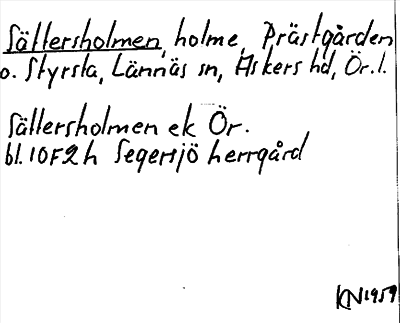 Sättersholmen, holme, Prästgården
o. Styrsta, Lännäs sn, Askers hd, Ör. l.
Sättersholmen ek Ör.
bl. 10F2h Segersjö herrgård
KN1959